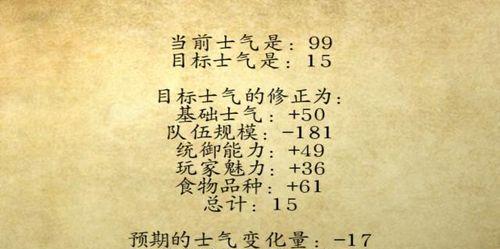 当前士气是：99
目标士气是：15
目标士气的修正为：
基础士气：+50
队伍规模：-181
统御能力：+49
玩家魅力：+36
食物品种：+61
总计：15
预期的士气变化量：-17